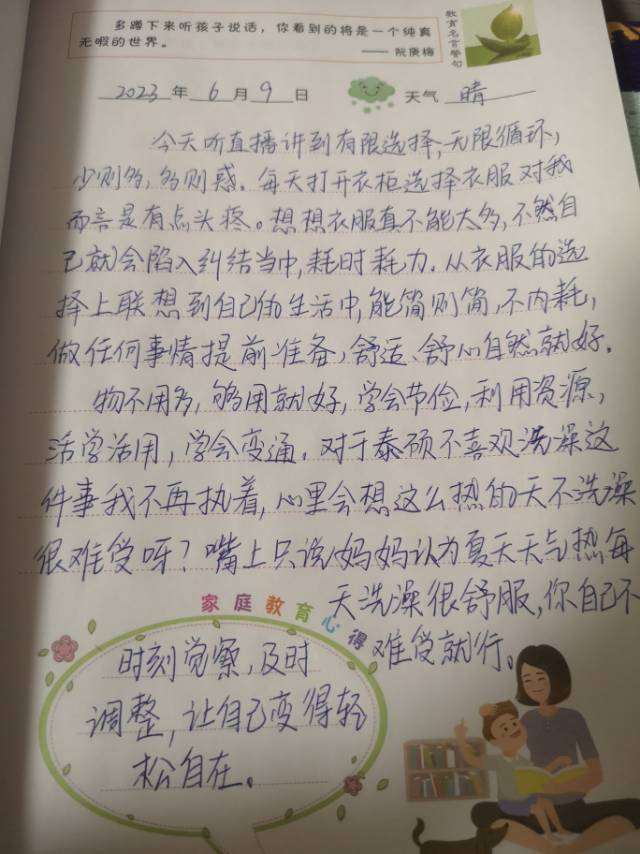 多蹲下来听孩子说话，你看到的将是一个纯真
无瑕的世界。
—— 阮庚梅
教育名言警句
2023 年 6 月 9 日 天气 晴
今天听直播讲到有限选择,无限循环,
少则多,多则惑。每天打开衣柜选择衣服对我
而言是有点头疼。想想衣服真不能太多,不然自
己就会陷入纠结当中,耗时耗力.从衣服的选
择上联想到自己的生活中,能简则简,不内耗,
做任何事情提前准备,舒适、舒心自然就好.
物不用多,够用就好,学会节俭,利用资源,
活学活用,学会变通.对于泰硕不喜欢洗澡这
件事我不再执着,心里会想这么热的天不洗澡
很难受呀?嘴上只说妈妈认为夏天天气热每
天洗澡很舒服,你自己不
难受就行。
家庭教育心得
时刻觉察,及时
调整,让自己变得轻
松自在。